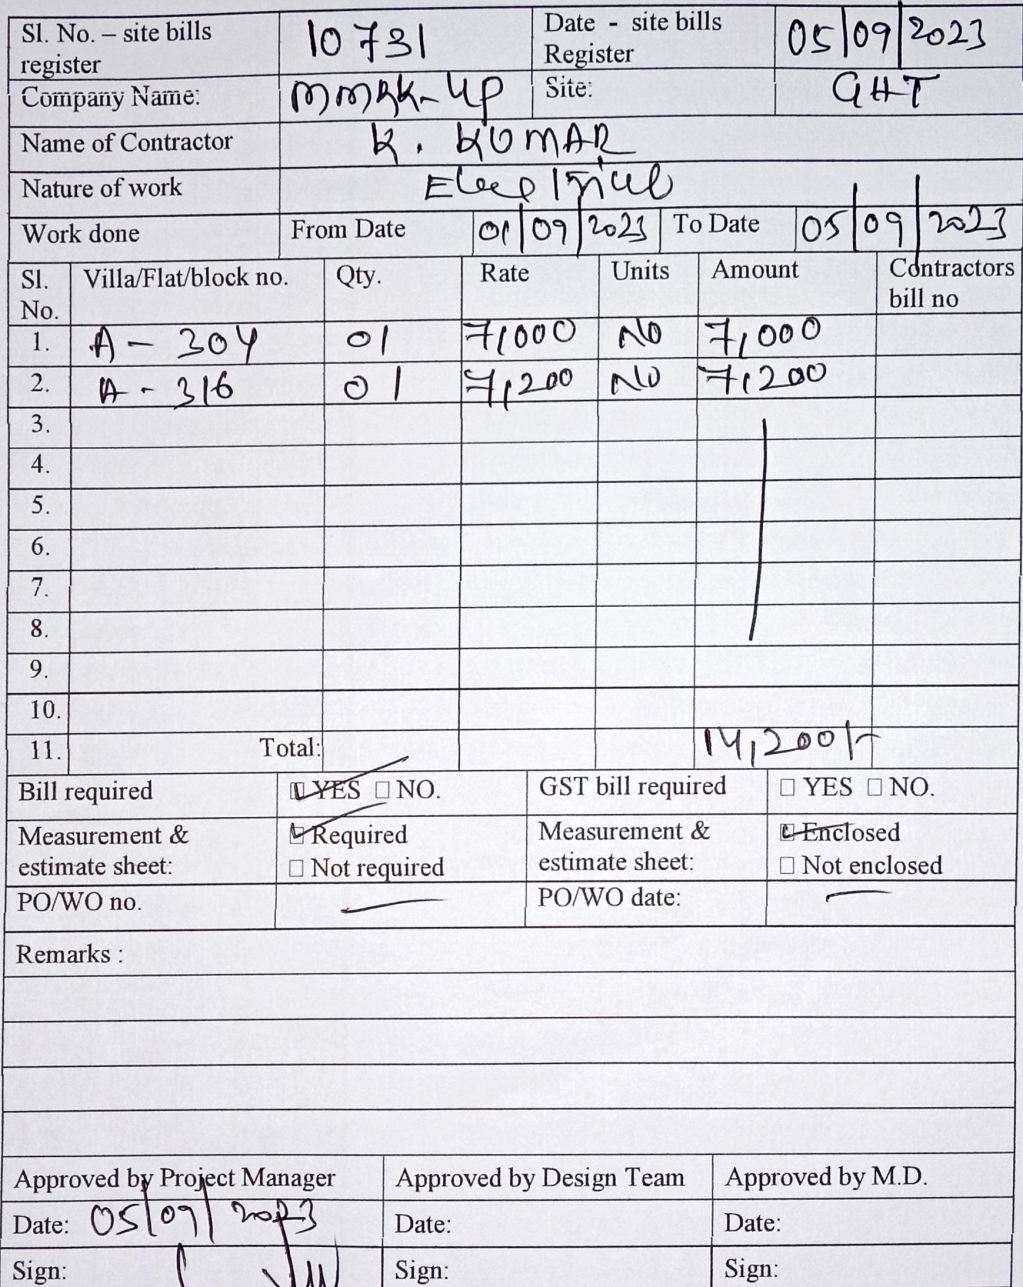 Sl. No. – site bills register 10731 Date - site bills Register 05/09/2023
Company Name: Site: GHT
Name of Contractor K. KUMAR
Nature of work
Work done From Date 01/09/2023 To Date 05/09/2023
Sl. No. Villa/Flat/block no. Qty. Rate Units Amount Contractors bill no
1. A - 204 01 7,000 No 7,000
2. A - 316 01 7,200 No 7,200
3.
4.
5
6.
7
8.
9
10.
11 Total: 14,200/-
Bill required YES NO. GST bill required YES NO.
Measurement & estimate sheet: Required Not required Measurement & estimate sheet: Enclosed Not enclosed
PO/WO no. PO/WO date:
Remarks :
Approved by Project Manager Approved by Design Team Approved by M.D.
Date: 05/09/2023 Date: Date:
Sign: Sign: Sign: